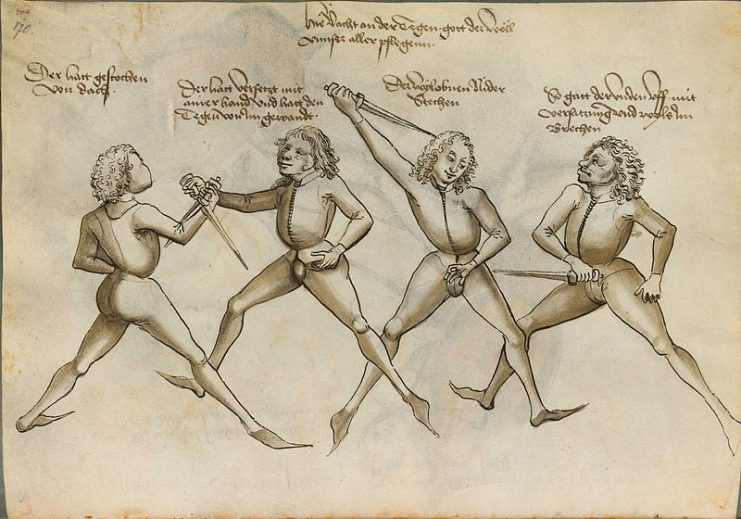 170.
Hie vacht an der Tegen gott der wöll
vnnser aller pflegenn
Der hatt gestochen
von dach
Der hatt versetzt mit
ainer hand vnd hatt den
Tegen vmm gewandt
Der wyl obnen Nider
Stechen
So gatt der vnden vff mit
versatzung vnd wyl im
Brechen